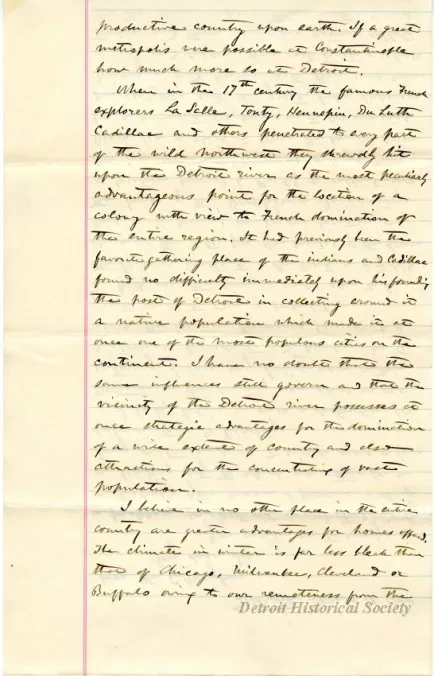 productive country upon earth. If a great
metropolis were possible at Constantinople
how much more so at Detroit.
When in the 17th century the famous French
explorers La Salle, Tonty, Hennepin, Du Luth
Cadillac and others penetrated to every part
of the wild Northwest they shrewdly hit
upon the Detroit river as the most peculiarly
advantageous point for the location of a
colony with view to French domination of
the entire region. It had previously been the
favorite gathering place of the indians and Cadillac
found no difficulty immediately upon his founding
the post of Detroit in collecting around it
a native population which made it at
once one of the most populous cities on the
continent. I have no doubt that the
same influences still govern and that the
vicinity of the Detroit river possesses at
once strategic advantages for the domination
of a wide extent of country and also
attractions for the concentrating of vast
population.
I believe in no other place in the entire
country are greater advantages for homes offered.
The climate in winter is far less bleak than
that of Chicago, Milwaukee, Cleveland or
Buffalo owing to our remoteness from the
Detroit Historical Society